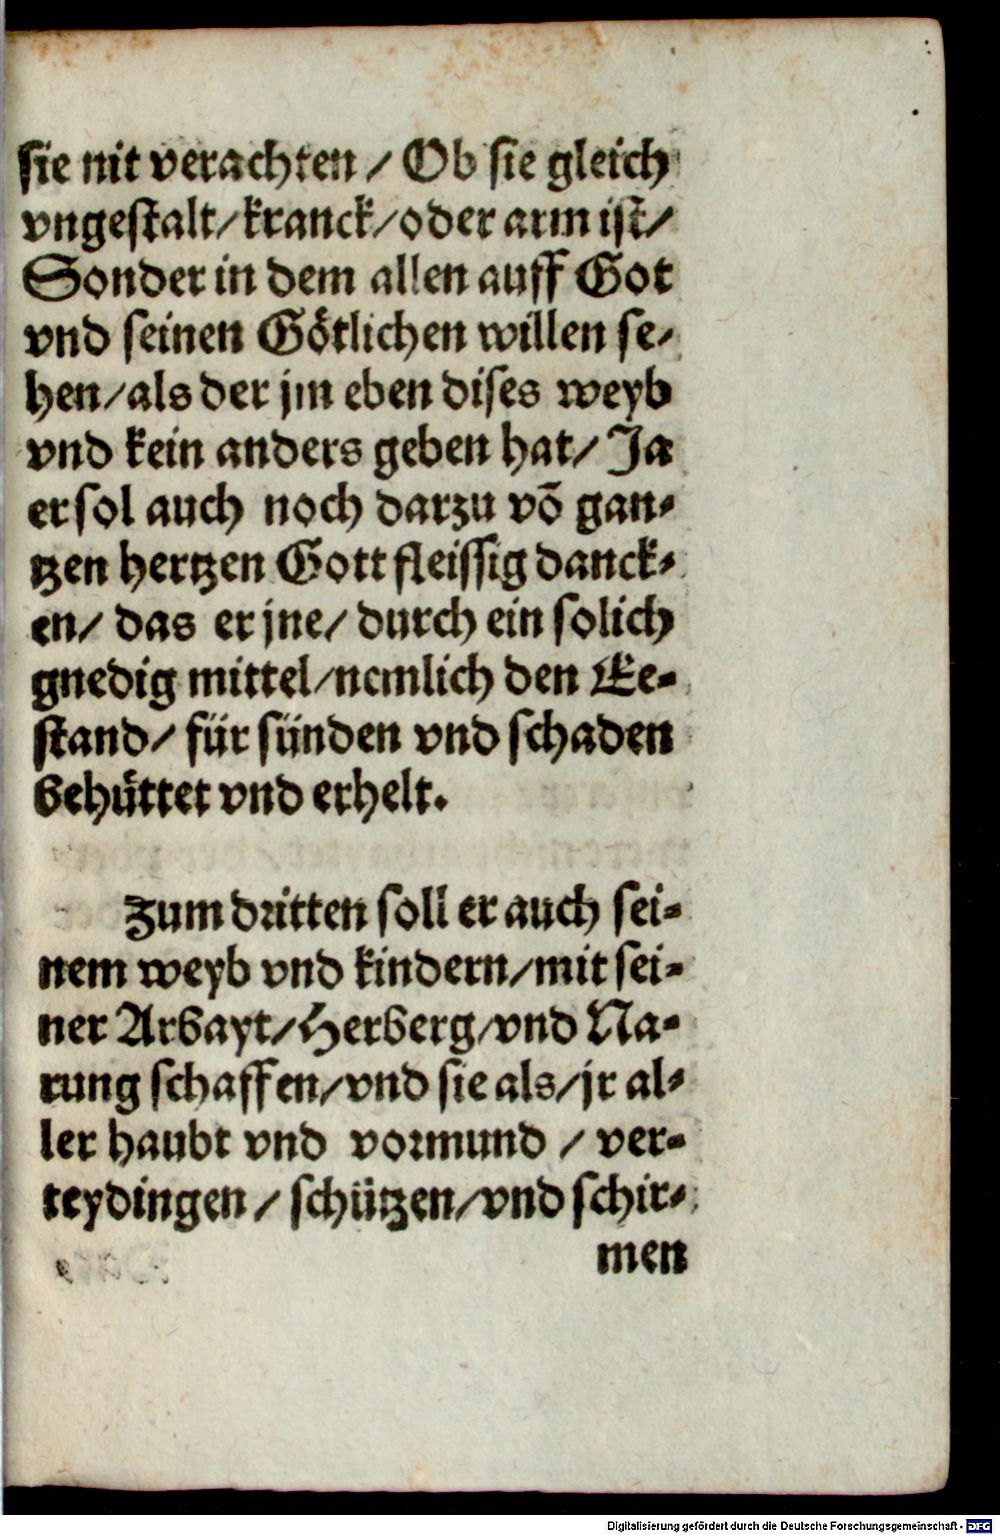 sie nit verachten / Ob sie gleich
vngestalt/kranck/oder arm ist/
Sonder in dem allen auff Got
vnd seinen Goͤtlichen willen se-
hen/als der jm eben dises weyb
vnd kein anders geben hat/ Ja
er sol auch noch darzu võ gan-
tzen hertzen Gott fleissig danck-
en/ das er jne/ durch ein solich
gnedig mittel/nemlich den Ee-
stand/ für sünden vnd schaden
behuͤttet vnd erhelt.
Zum dritten soll er auch sei-
nem weyb vnd kindern/mit sei-
ner Arbayt/Herberg/vnd Na-
rung schaffen/vnd sie als/jr al-
ler haubt vnd vormund / ver-
teydingen / schützen/vnd schir-
men
Digitalisierung gefördert durch die Deutsche Forschungsgemeinschaft - DFG